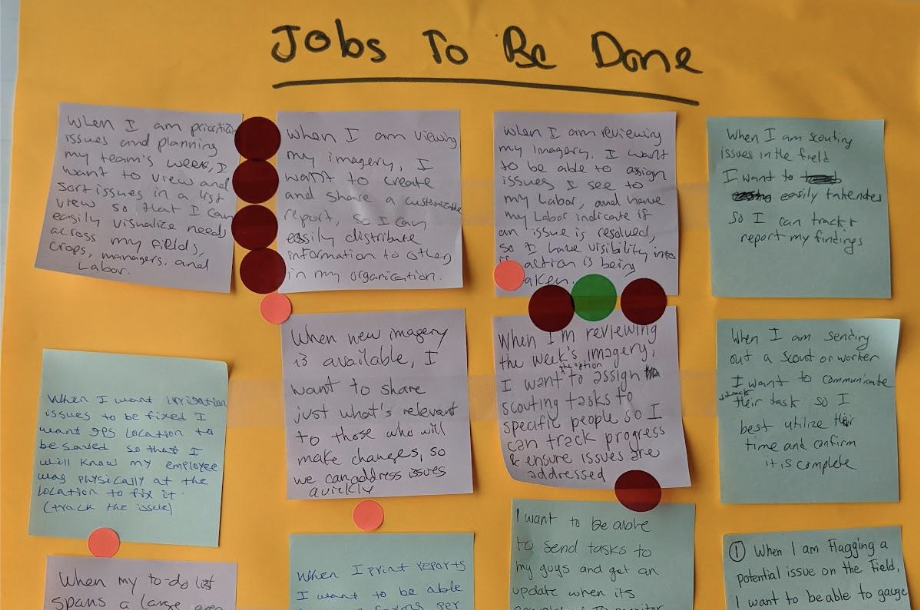 Jobs To Be Done
When I am
issues and planning
my team's week, I
want to view and
sort issues in a list
view so that I can
easily visualize needs
across my fields,
crops, managers, and
Labor.
When I am viewing
my imagery, I
want to create
and share a
report, so I can
easily distribute
information to others
in my organization.
When I am reviewing
my Imagery, I want
to be able to assign
issues I see to
my Labor, and have
my Labor indicate if
an issue is resolved,
so I have visibility into
action is being
taken.
When I am scouting
issues in the field
I want to
easily
So I can track +
report my findings
When I want irrigation
issues to be fixed I
want GPS location to
be saved so that I
will know my employee
was physically at the
location to fix it.
(track the issue)
When new imagery
is available, I
want to share
just what's relevant
to those who will
make changes, so
we can address issues
quickly
When I'm reviewing
the week's imagery,
the option
I want to assign
scouting tasks to
specific people so I
can track progress
& ensure issues are
addressed
When I am sending
out a scout or worker
I want to communicate
their task so I
best utilize their
time and confirm
it is complete
When my to-do list
spans a large area
When I print reports
I want to be able
per
I want to be able
to send tasks to
my guys and get an
update when its
① When I am flagging a
potential issue on the field,
I want to be able to gauge